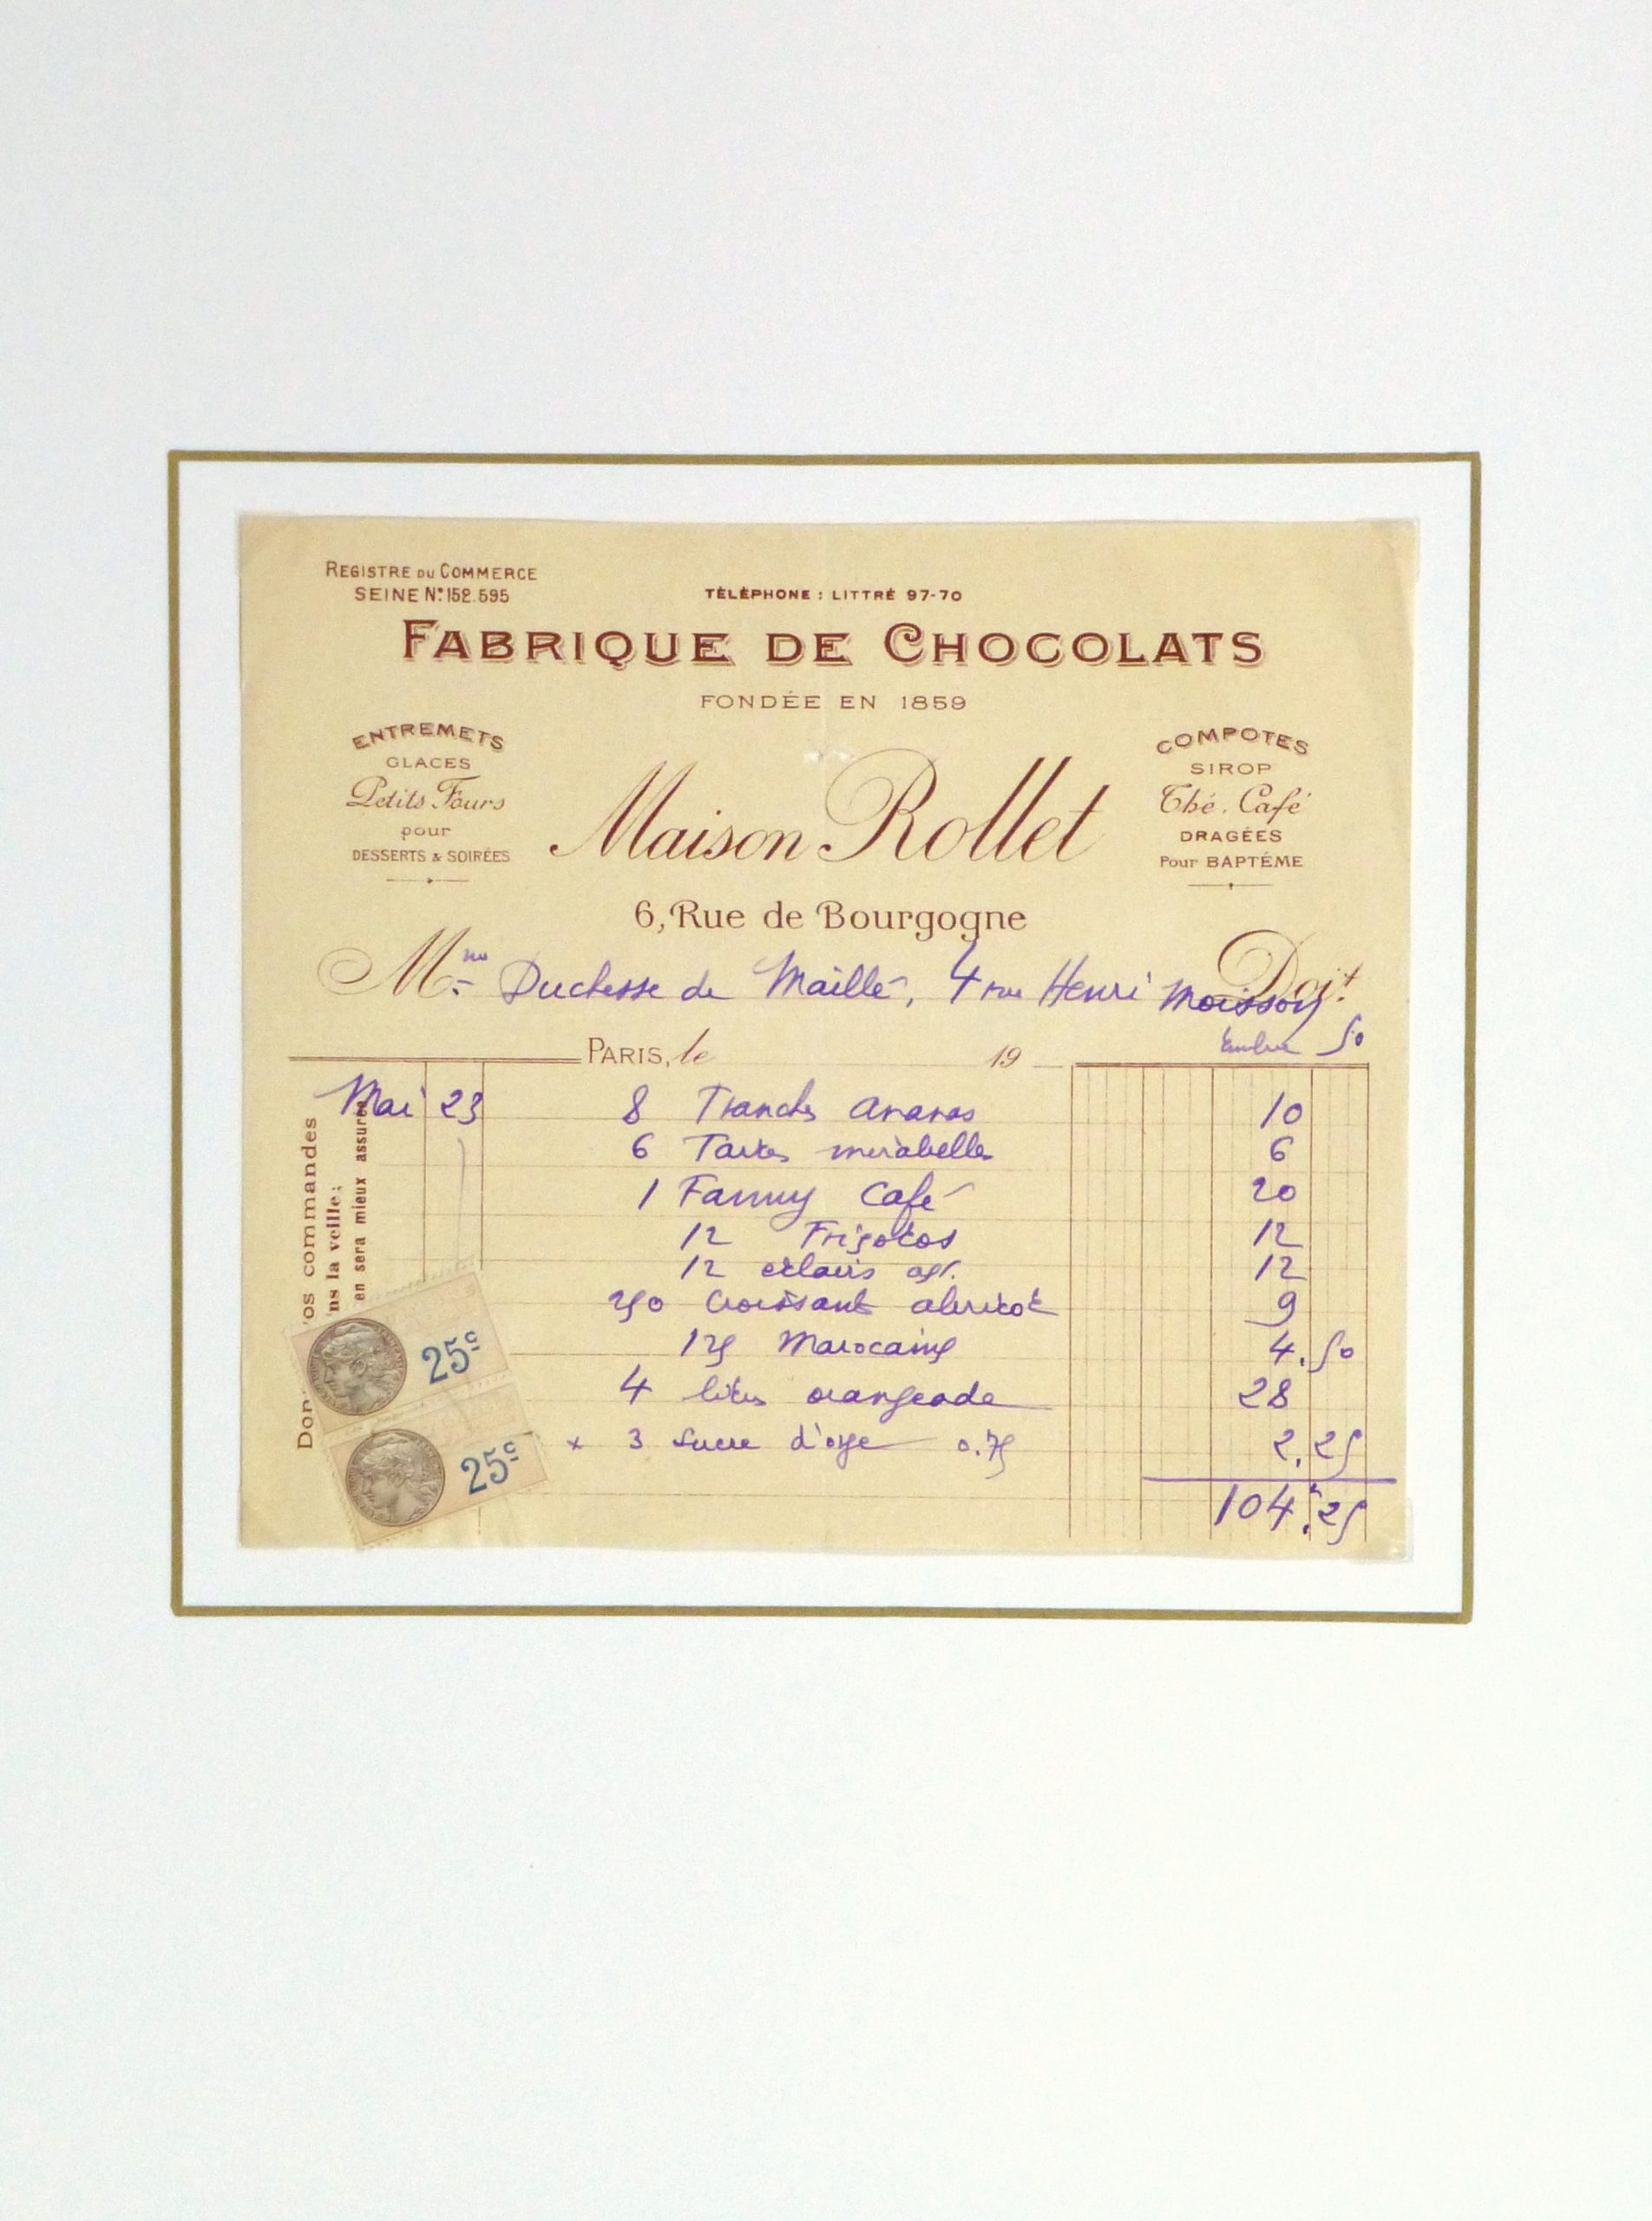 REGISTRE DU COMMERCE
SEINE N° 152.595
TÉLÉPHONE : LITTRÉ 97-70
FABRIQUE DE CHOCOLATS
FONDÉE EN 1859
ENTREMETS
GLACES
Petits Fours
pour
DESSERTS & SOIRÉES
Maison Rollet
COMPOTES
SIROP
Thé. Café
DRAGÉES
Pour BAPTÉME
6, Rue de Bourgogne
Mme Duchesse de Maillé, 4 rue Henri Moisson Doit
Timbre 50
PARIS, le 19
Mai 23 8 Tranches ananas 10
6 Tartes mirabelles 6
1 Fanny Café 20
12 Frigolos 12
12 eclairs 12
250 Croissant abricot 9
125 Marocains 4.50
4 litres orangeade 28
x 3 Sucre d'orge 0.75 2.25
104.25
os commandes
ns la veille;
en sera mieux assurée
25c
25c